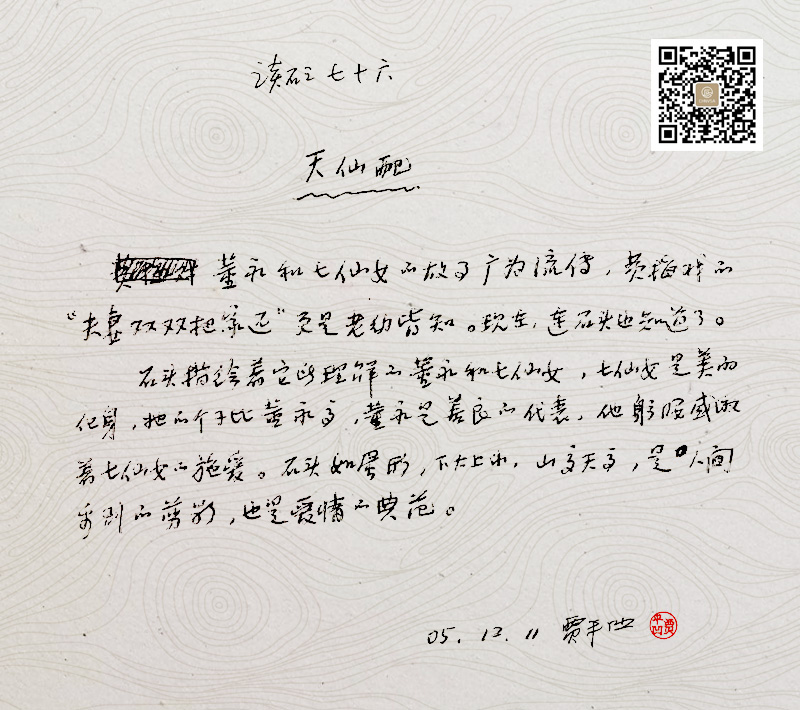 读石之七十六
天仙配
董永和七仙女的故事广为流传，黄梅戏的
“夫妻双双把家还”更是老幼皆知。现在，连石头也知道了。
石头描绘着它所理解的董永和七仙女，七仙女是美的
化身，她的个子比董永高，董永是善良的代表，他躬腰感激
着七仙女的施爱。石头如蛋形，下大上小，山高天高，是人间
的剪影，也是爱情的典范。
05.12.11 贾平凹
贾平凹